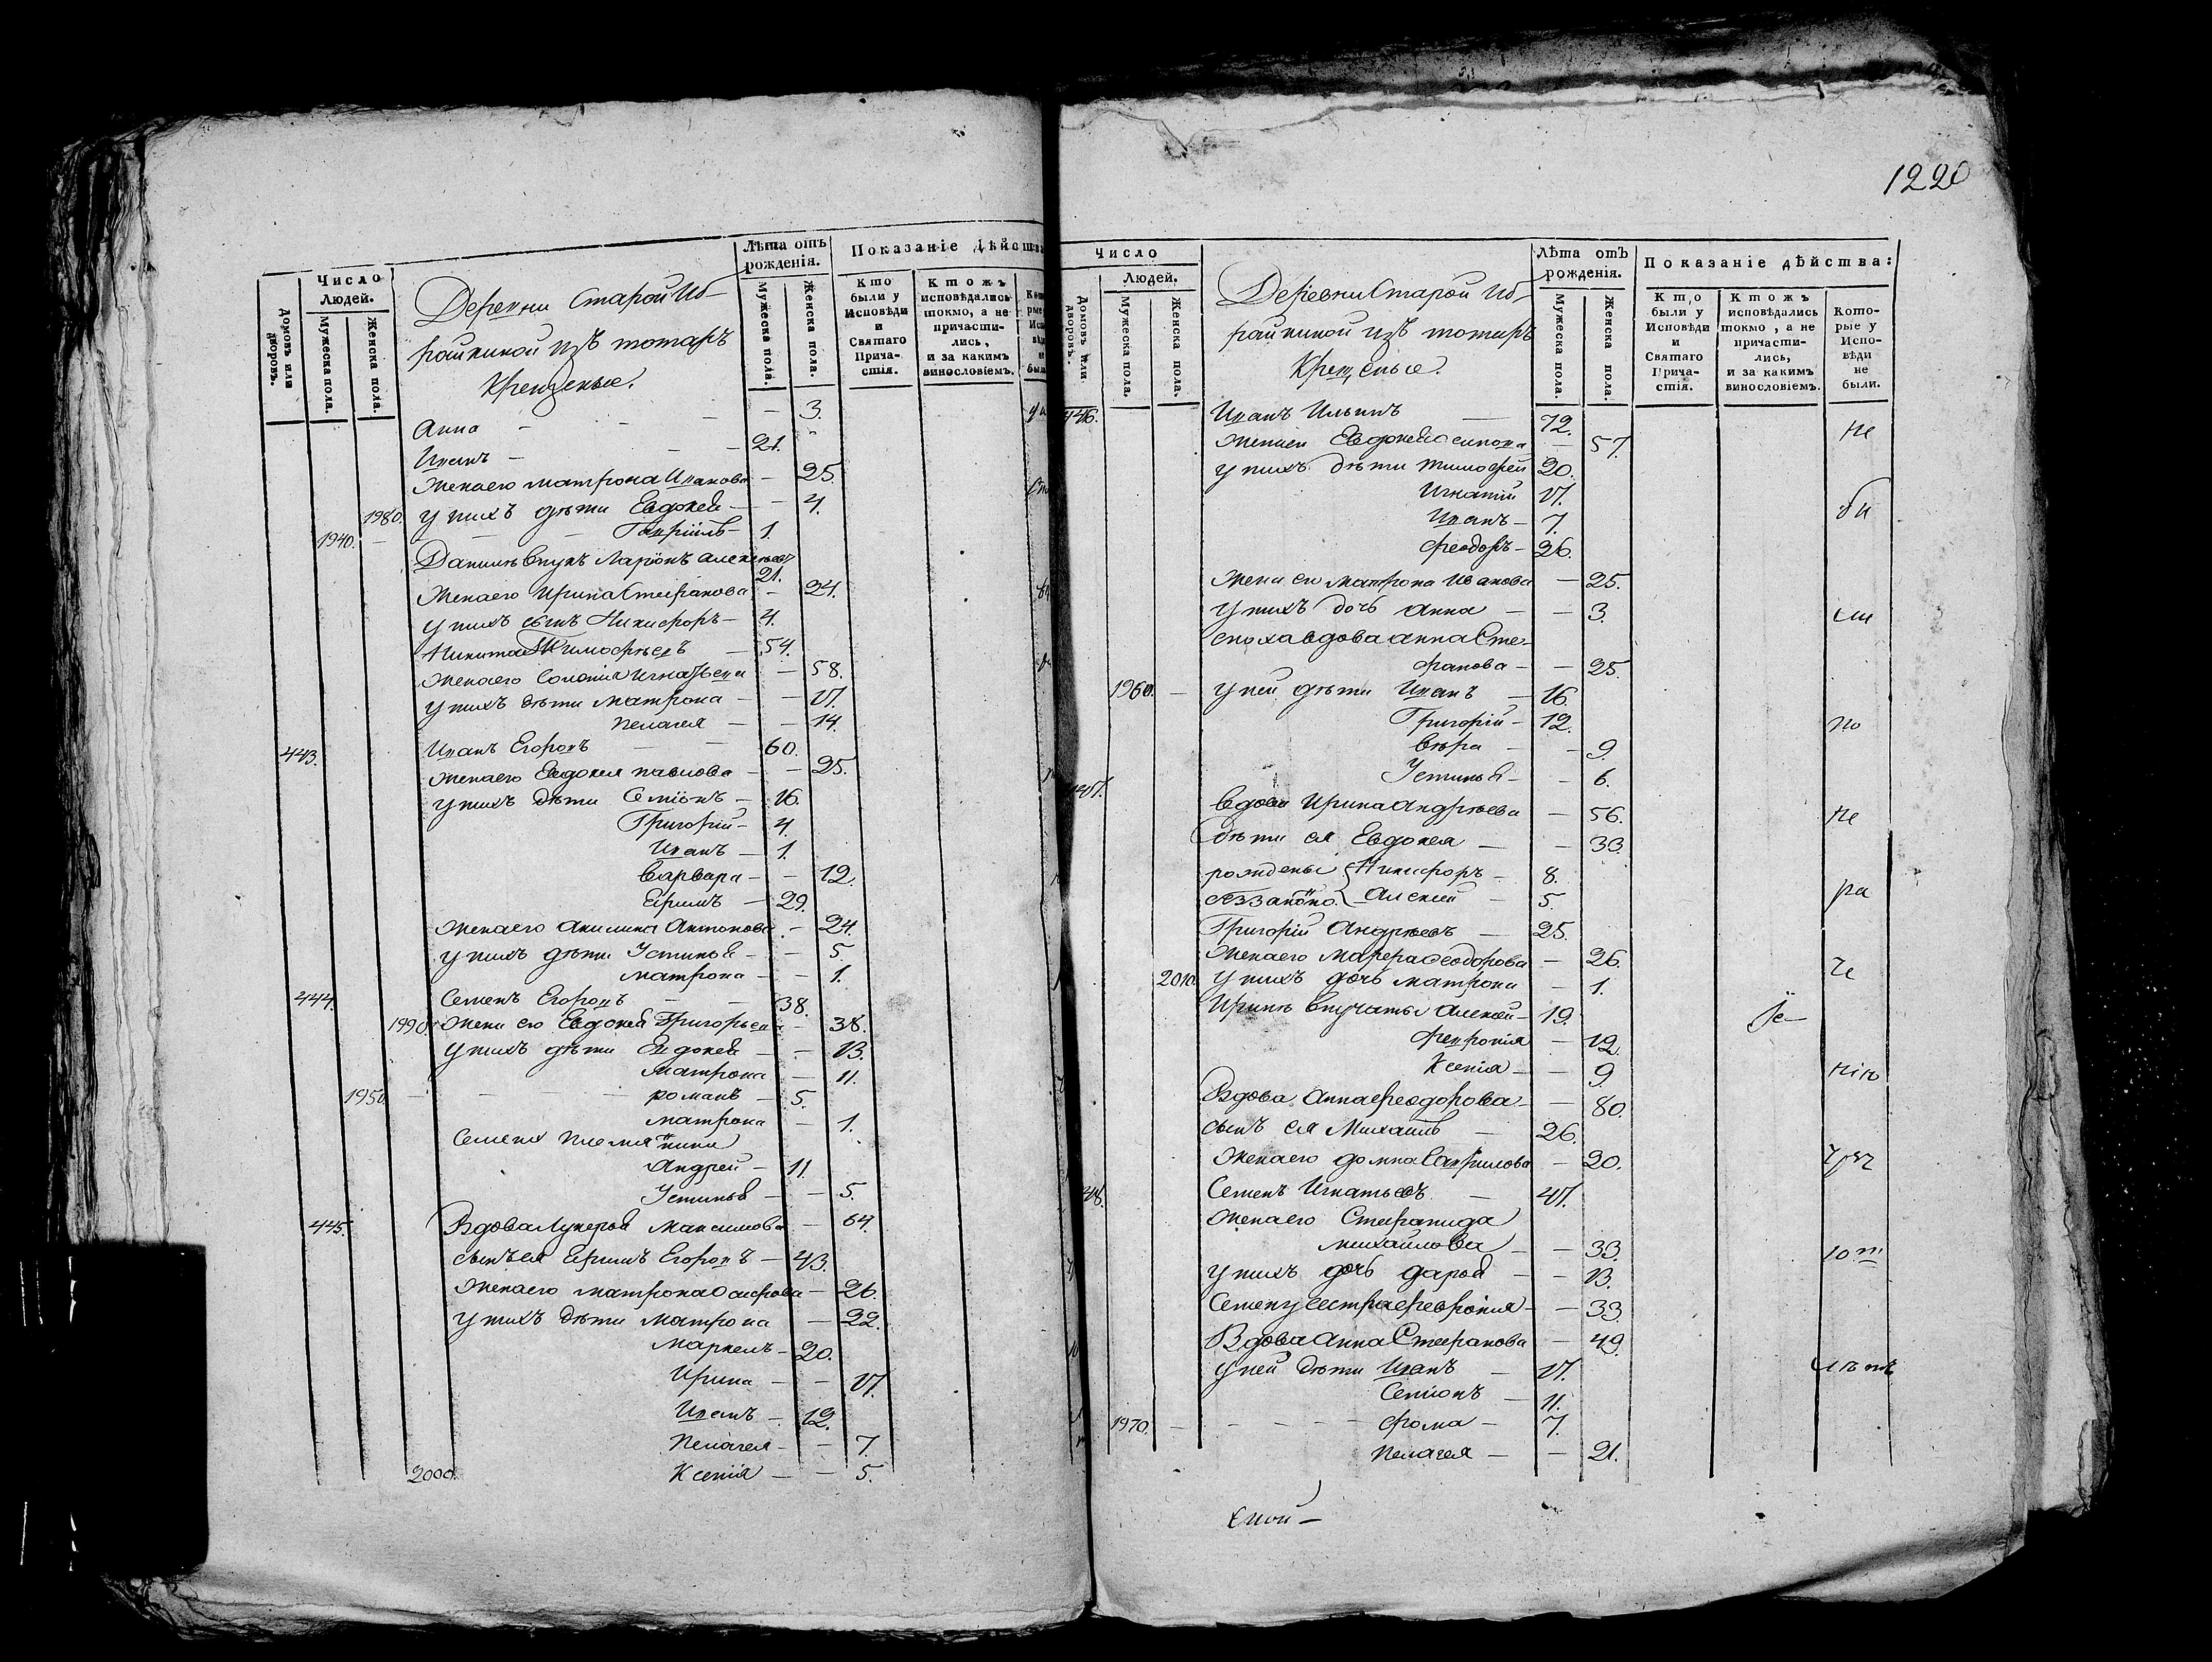 Число
Людей.
Домовъ или дворовъ.
Мужеска пола.
Женска пола.
Деревни Старой Иб-
райкиной изъ тотаръ
Крещеные.
Лѣта отъ рожденія.
Мужеска пола.
Женска пола.
Показаніе Дѣйства
Кто были у Исповѣди и Святаго Прича- стія.
Кто жъ исповѣдались токмо, а не причасти- лись, и за какимъ винословіемъ.
Анна - - - 3.
Иванъ - - 21.
Жена его матрона Иванова - 25.
1980. у нихъ дѣти Евдокея - - 4.
1940. - - - Гавріилъ - 1.
Данилѣ внукъ Ларіонъ алексѣевъ 21.
Жена его Ирина Стефанова - 24.
у нихъ сынъ Никифоръ - 4.
Никита Тимофѣевъ - 54.
Жена его Соломія Игнатьева - 58.
у нихъ дѣти матрона - - 17.
пелагея - - 14.
443. Иванъ Егоровъ - - 60.
Жена его Евдокея павлова - - 25.
у нихъ дѣти Семіонъ - 16.
Григорій - 4.
Иванъ - 1.
варвара - - 12.
Ефимъ - 29.
Жена его Акилина Антонова - 24.
у нихъ дѣти Устинья - - 5.
матрона - - 1.
444. Семенъ Егоровъ - - 38.
1990. Жена его Евдокея Григорьева - 38.
у нихъ дѣти Евдокея - - 13.
Матрона - 11.
1950. - - - - романъ - 5.
матрона - 1.
Семена племянники
Андрей - 11
Устинья - - 5.
445. Вдова Лукерья Максимова - 64.
сынъ ея Ефимъ Егоровъ - 43.
Жена его матрона Осифова - 26.
у нихъ дѣти Матрона - 22.
Маркелъ - 20.
Ирина - - 17.
Иванъ - 12.
Пелагея - - 7.
2000. Ксенія - - 5.
1220
Число
Людей.
Домовъ или дворовъ.
Мужеска пола.
Женска пола.
Деревни Старой Иб-
райкиной изъ тотаръ
Крещеные.
Лѣта отъ рожденія.
Мужеска пола.
Женска пола.
Показаніе дѣйства:
Кто были у Исповѣди и Святаго Прича- стія.
Кто жъ исповѣдались токмо, а не причасти- лись, и за какимъ винословіемъ.
Кото- рые у Испо- вѣди не были.
446. Иванъ Ильинъ - 72.
Жена его Евдокея Осипова - 57.
у нихъ дѣти тимофей 20.
Игнатій 17.
Иванъ - 7.
Феодоръ - 26.
Жена его матрона Иванова - 25.
у нихъ дочь Анна - - 3.
сноха вдова анна Сте-
фанова - - 25.
1960. - у ней дѣти Иванъ - 16.
Григорій - 12.
вѣра - - 9.
Устинья - - 6.
447. вдова Ирина Андрѣева - 56.
дѣти ея Евдокея - - 33.
рождены Никифоръ - 8.
беззаконно Алексѣй - 5.
Григорій Андрѣевъ - 25.
Жена его Марфа Феодорова - 26.
2010. у нихъ дочь матрона - 1.
Иринѣ внучаты Алексѣй - 19.
Феврониа - 12.
Ксенія - - 9.
Вдова Анна Феодорова - - 80.
сынъ ея Михаилъ - 26.
Жена его домна Гаврилова - 20.
448. Семенъ Игнатьевъ - 47.
Жена его Стефанида
михайлова - - 33.
у нихъ дочь дарья - - 13.
Семену сестра Февронія - - 33.
Вдова Анна Стефанова - 49.
у ней дѣти Иванъ - 17.
Семіонъ - 11.
1970. - - - - - фома - 7.
Пелагея - - 21.
не
бы
ли
по
не
ра
че
нію
лѣтъ